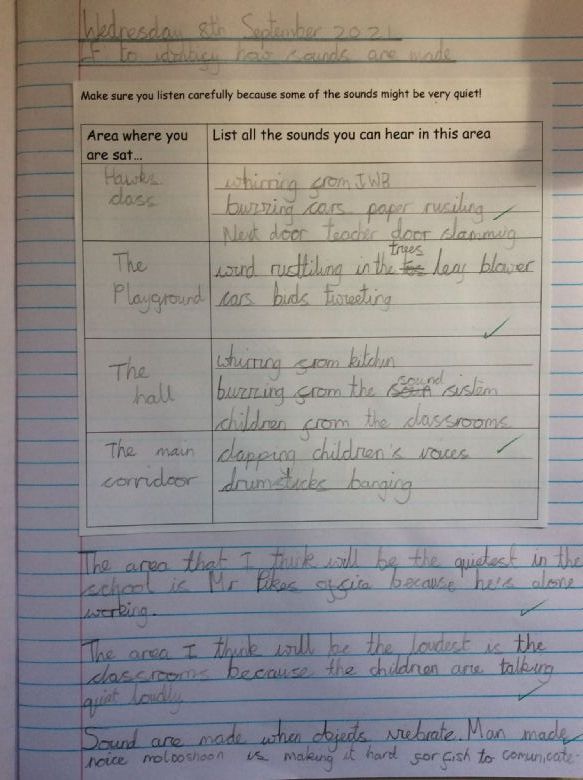 Wednesday 8th September 2021
I to identify how sounds are made
Make sure you listen carefully because some of the sounds might be very quiet!
Area where you are sat...
List all the sounds you can hear in this area
Hawks
class
whirring from IWB
burzring cars paper rusiling
Next door teacher door slammug
The
Playground
wind rusttiling in the trees leaf blower
cars birds tweeting
The
hall
whirring from kitchin
burzring from the sound sistem
children from the classrooms
The main
corridoor
clapping children's voices
drumsticks banging
The area that I think will be the quietest in the
school is Mr Pikes offica because he's alone
working.
The area I think will be the loudest is the
classrooms because the children are talking
quiet loudly
Sound are made when objects viebrate. Man made
noice molooshoon is making it hard for fish to comunicate